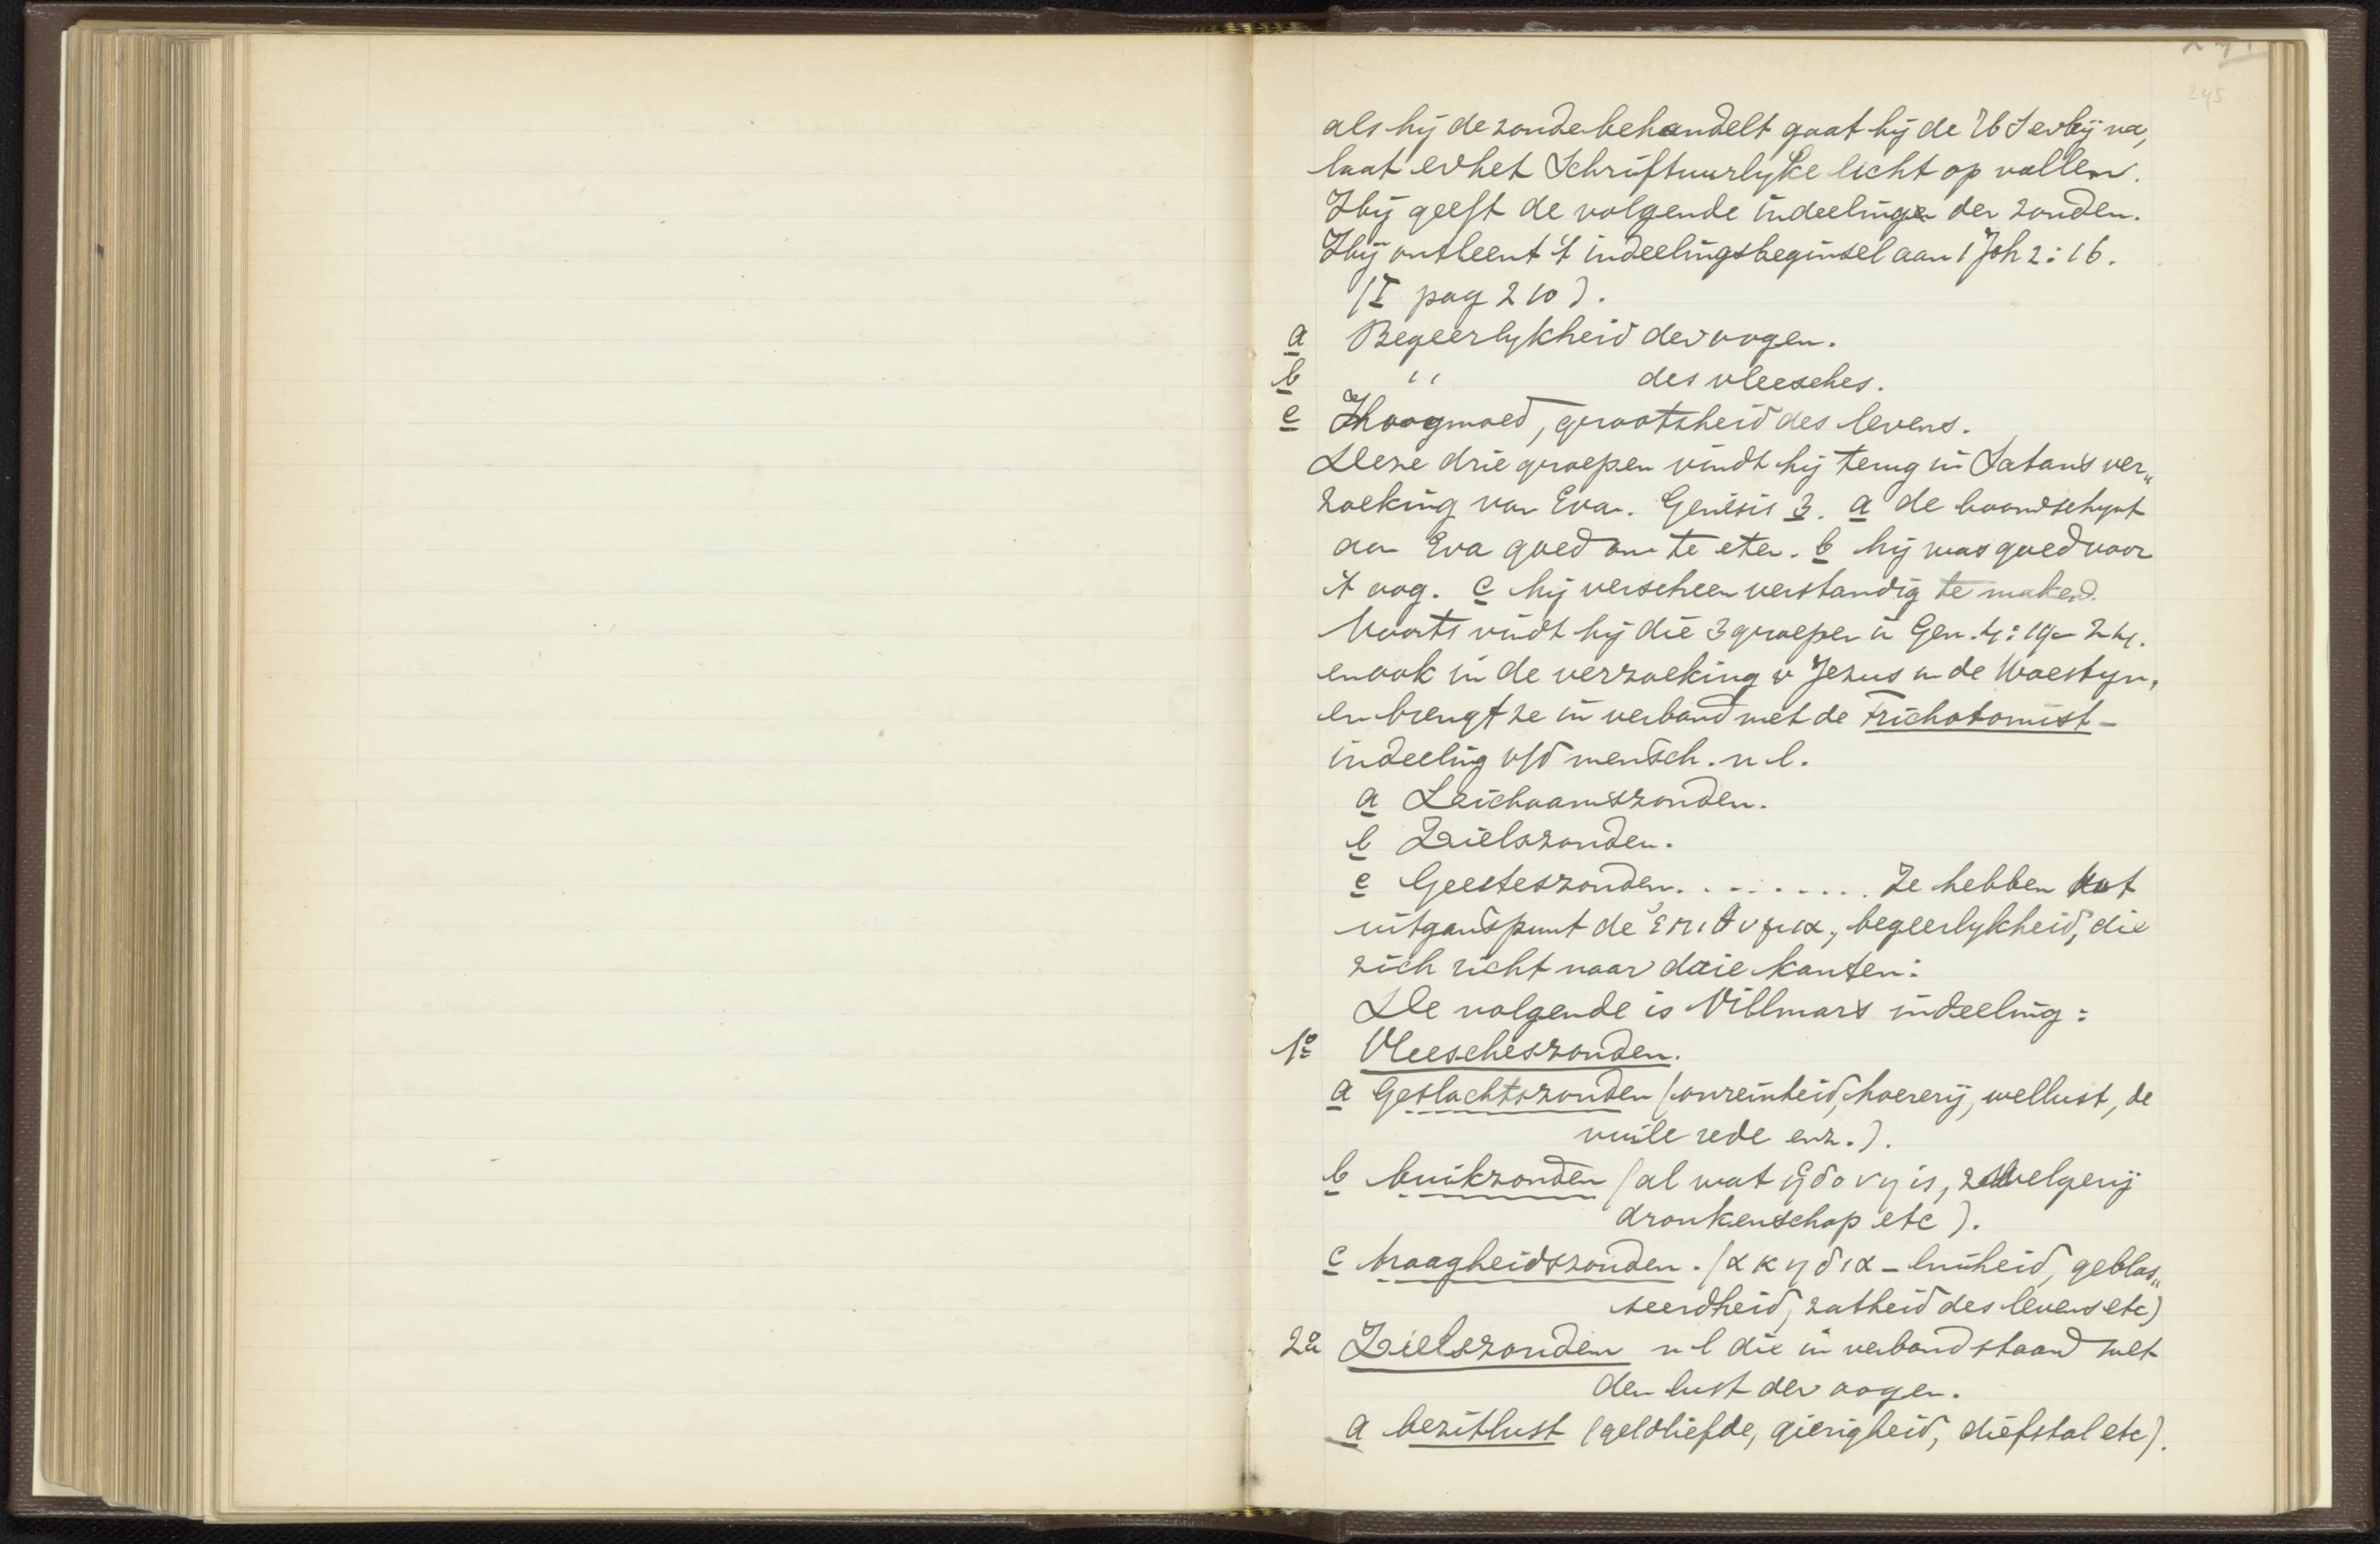 245
als hij de zonde behandelt gaat hij de H S erbij na,
laat er het Schriftuurlyke licht op vallen.
Hij geeft de volgende indeelinge der zonden.
Hij ontleent 't indeelingsbeginsel aan 1 Joh 2:16.
(I pag 210).
a Begeerlykheid der oogen.
b " des vleesches.
c Hoogmoed, grootsheid des levens.
Deze drie groepen vindt hij terug in Satan's ver„
zoeking van Eva. Genesis 3. a de boom schynt
aan Eva goed om te eten. b hij was goed voor
't oog. c hij verscheen verstandig te maken.
Voorts vindt hij die 3 groepen in Gen. 4:19-24.
en ook in de verzoeking v Jezus in de Woestyn,
en brengt ze in verband met de Trichotomist-
indeeling v/d mensch. n l.
a Leichaamszonden.
b Zielszonden.
c Geesteszonden. . . . . . . . . Ze hebben tot
uitganspunt de ἐπιθυμια, begeerlykheid, die
zich richt naar drie kanten:
De volgende is Villmar's indeeling:
1o Vleescheszonden.
a Geslachtszonden (onreinheid, hoererij, wellust, de
vuile rede enz.).
b buikzonden (al wat ηδονη is, zwelgerij
dronkenschap etc).
c traagheidszonden. (ακηδια - luiheid, geblas„
seerdheid, zatheid des levens etc)
2o Zielszonden n l die in verband staan met
den lust der oogen.
a bezitlust (geldliefde, gierigheid, diefstal etc).